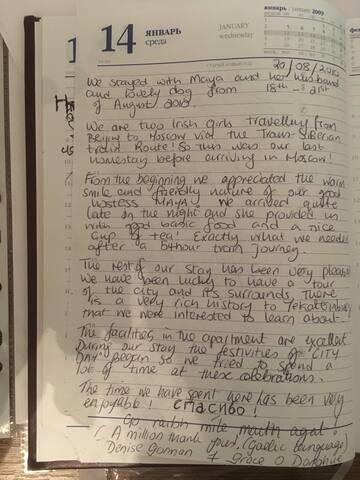 14
ЯНВАРЬ
среда
JANUARY
wednesday
январь
january 2009
20/08/2010
We stayed with Maya and her husband
and lovely dog from 18th - 21st
of August 2010.
We are two Irish girls travelling from
Beijing to Moscow via the Trans-Siberian
train Route! So this was our last
homestay before arriving in Moscow!
From the beginning we appreciated the warm
smile and friendly nature of our good
hostess MAYA. We arrived quite
late in the night and she provided us
with good basic food and a nice
cup of tea! Exactly what we needed
after a hour train journey.
The rest of our stay has been very pleasant
We have been lucky to have a tour
of the city and its surrounds. There
is a very rich history to Yekatinburg
that we were interested to learn about.
The facilities in the apartment are excellent
During our stay the festivities of CITY
DAY began so we tried to spend a
lot of time at these celebrations.
The time we have spent here has been very
enjoyable! СПАСИБО!
Go raibh mile maith agat
(A million thank yous, (Gaelic Language)
Denise & Grace O Donohue